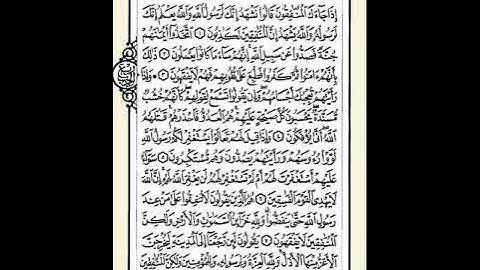 إِذَا جَآءَكَ ٱلْمُنَٰفِقُونَ قَالُوا۟ نَشْهَدُ إِنَّكَ لَرَسُولُ ٱللَّهِ وَٱللَّهُ يَعْلَمُ إِنَّكَ
لَرَسُولُهُۥ وَٱللَّهُ يَشْهَدُ إِنَّ ٱلْمُنَٰفِقِينَ لَكَٰذِبُونَ ١ ٱتَّخَذُوٓا۟ أَيْمَٰنَهُمْ
جُنَّةً فَصَدُّوا۟ عَن سَبِيلِ ٱللَّهِ إِنَّهُمْ سَآءَ مَا كَانُوا۟ يَعْمَلُونَ ٢ ذَٰلِكَ
بِأَنَّهُمْ ءَامَنُوا۟ ثُمَّ كَفَرُوا۟ فَطُبِعَ عَلَىٰ قُلُوبِهِمْ فَهُمْ لَا يَفْقَهُونَ ٣ وَإِذَا
رَأَيْتَهُمْ تُعْجِبُكَ أَجْسَامُهُمْ وَإِن يَقُولُوا۟ تَسْمَعْ لِقَوْلِهِمْ كَأَنَّهُمْ خُشُبٌ
مُّسَنَّدَةٌ يَحْسَبُونَ كُلَّ صَيْحَةٍ عَلَيْهِمْ هُمُ ٱلْعَدُوُّ فَٱحْذَرْهُمْ قَٰتَلَهُمُ
ٱللَّهُ أَنَّىٰ يُؤْفَكُونَ ٤ وَإِذَا قِيلَ لَهُمْ تَعَالَوْا۟ يَسْتَغْفِرْ لَكُمْ رَسُولُ ٱللَّهِ
لَوَّوْا۟ رُءُوسَهُمْ وَرَأَيْتَهُمْ يَصُدُّونَ وَهُم مُّسْتَكْبِرُونَ ٥ سَوَآءٌ
عَلَيْهِمْ أَسْتَغْفَرْتَ لَهُمْ أَمْ لَمْ تَسْتَغْفِرْ لَهُمْ لَن يَغْفِرَ ٱللَّهُ لَهُمْ إِنَّ ٱللَّهَ
لَا يَهْدِى ٱلْقَوْمَ ٱلْفَٰسِقِينَ ٦ هُمُ ٱلَّذِينَ يَقُولُونَ لَا تُنفِقُوا۟ عَلَىٰ مَنْ عِندَ
رَسُولِ ٱللَّهِ حَتَّىٰ يَنفَضُّوا۟ وَلِلَّهِ خَزَآئِنُ ٱلسَّمَٰوَٰتِ وَٱلْأَرْضِ وَلَٰكِنَّ
ٱلْمُنَٰفِقِينَ لَا يَفْقَهُونَ ٧ يَقُولُونَ لَئِن رَّجَعْنَآ إِلَى ٱلْمَدِينَةِ لَيُخْرِجَنَّ
ٱلْأَعَزُّ مِنْهَا ٱلْأَذَلَّ وَلِلَّهِ ٱلْعِزَّةُ وَلِرَسُولِهِۦ وَلِلْمُؤْمِنِينَ وَلَٰكِنَّ ٱلْمُنَٰفِقِينَ